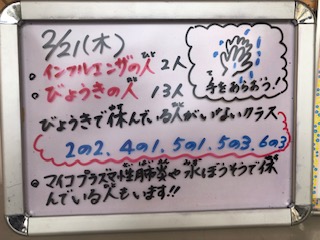 2/21(木)
インフルエンザの人 2人
びょうきの人 13人
手をあらおう!
びょうきで休んでいる人がいないクラス
2の2、4の1、5の1、5の3、6の3
マイコプラズマ性肺炎や水ぼうそうで休
んでいる人もいます!!